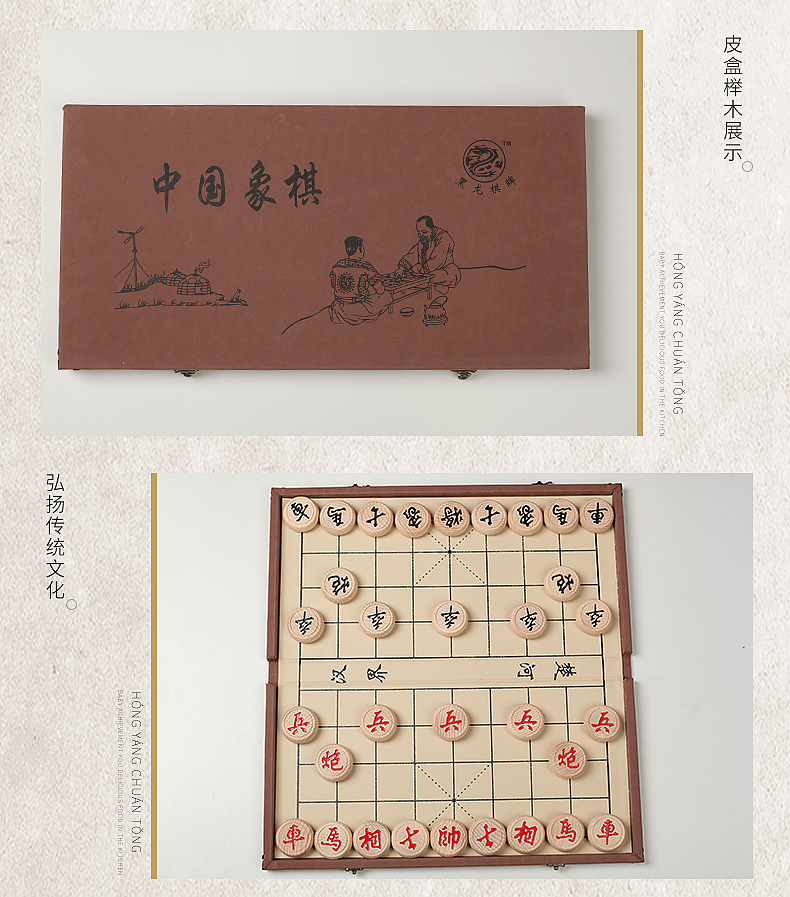 皮盒榉木展示
中国象棋
TM
黑龙棋牌
HÓNG YÁNG CHUÁN TǑNG
BABY ACHIEVEMENT YOU DELICIOUS FOOD IN THE KITCHEN
弘扬传统文化
車 馬 士 將 士 馬 車
炮 炮
卒 卒 卒 卒 卒
汉界 河楚
兵 兵 兵 兵 兵
炮 炮
車 馬 相 士 帥 士 相 馬 車
HÓNG YÁNG CHUÁN TǑNG
BABY ACHIEVEMENT YOU DELICIOUS FOOD IN THE KITCHEN